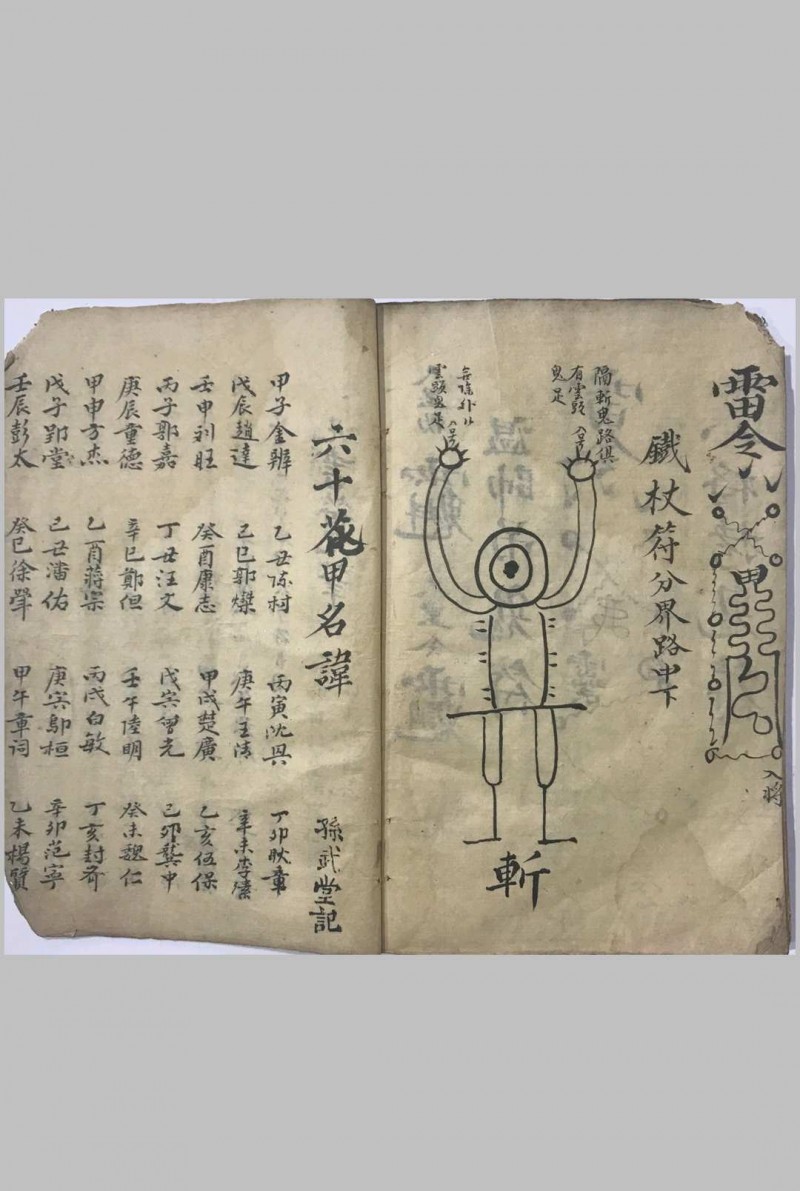 雷令
甲
入將
鐵杖符分界路中下
隔斬鬼路俱
有雲頭
鬼足
雲頭鬼足
斬
六十花甲名諱 孫武堂記
甲子金辨 乙丑陈材 丙寅沈興 丁卯耿章
戊辰趙達 己巳郭燦 庚午王清 辛未李素
壬申刘旺 癸酉康志 甲戌楚廣 乙亥伍保
丙子郭嘉 丁丑汪文 戊寅曾光 己卯龔中
庚辰重德 辛巳鄭但 壬午陸明 癸未魏仁
甲申方杰 乙酉蔣宗 丙戌白敏 丁亥封齐
戊子郢堂 己丑潘佑 庚寅鄔桓 辛卯范寧
壬辰彭太 癸巳徐 甲午章词 乙未楊賢